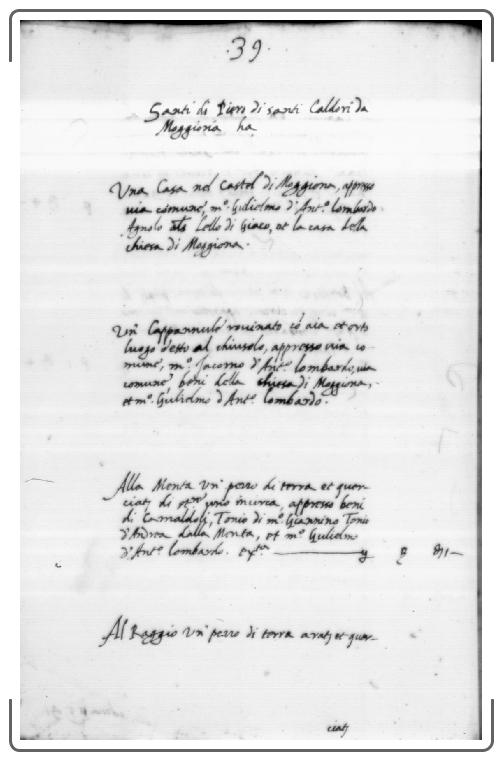 .39.
Santi di Piero di santi Caldori da
Moggiona ha
Una Casa nel Castel di Moggiona, apresso
via comune, m.º Gulielmo d'Ant.º lombardo
Agnolo als Lello di Giaco, et la casa della
chiesa di Moggiona.
Un' Cappannulo rouinato cō aia et orto
luogo detto al chiusolo, appresso uia co-
mune, m.º Jacomo d'Ant.º lombardo, uia
comune, beni della chiesa di Moggiona,
et m.º Gulielmo d'Ant.º lombardo.
Alla Monta un' pezzo di terra et quer-
ciatj di uno incirca, appresso beni
di Camaldoli, Tonio di m.º Giannino Tonio
d'Andrea dalla Monta, et m.º Gulielmo
d'Ant.º lombardo.
Al Raggio un' pezzo di terra aratj et quer-
ciatj